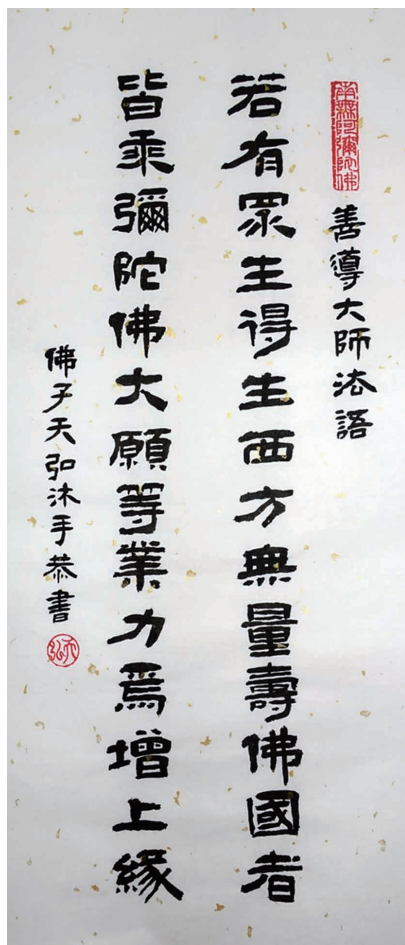 南無阿彌陀佛
善導大師法語
若有眾生得生西方無量壽佛國者
皆乘彌陀佛大願等業力爲增上緣
佛子天弘沐手恭書
天弘